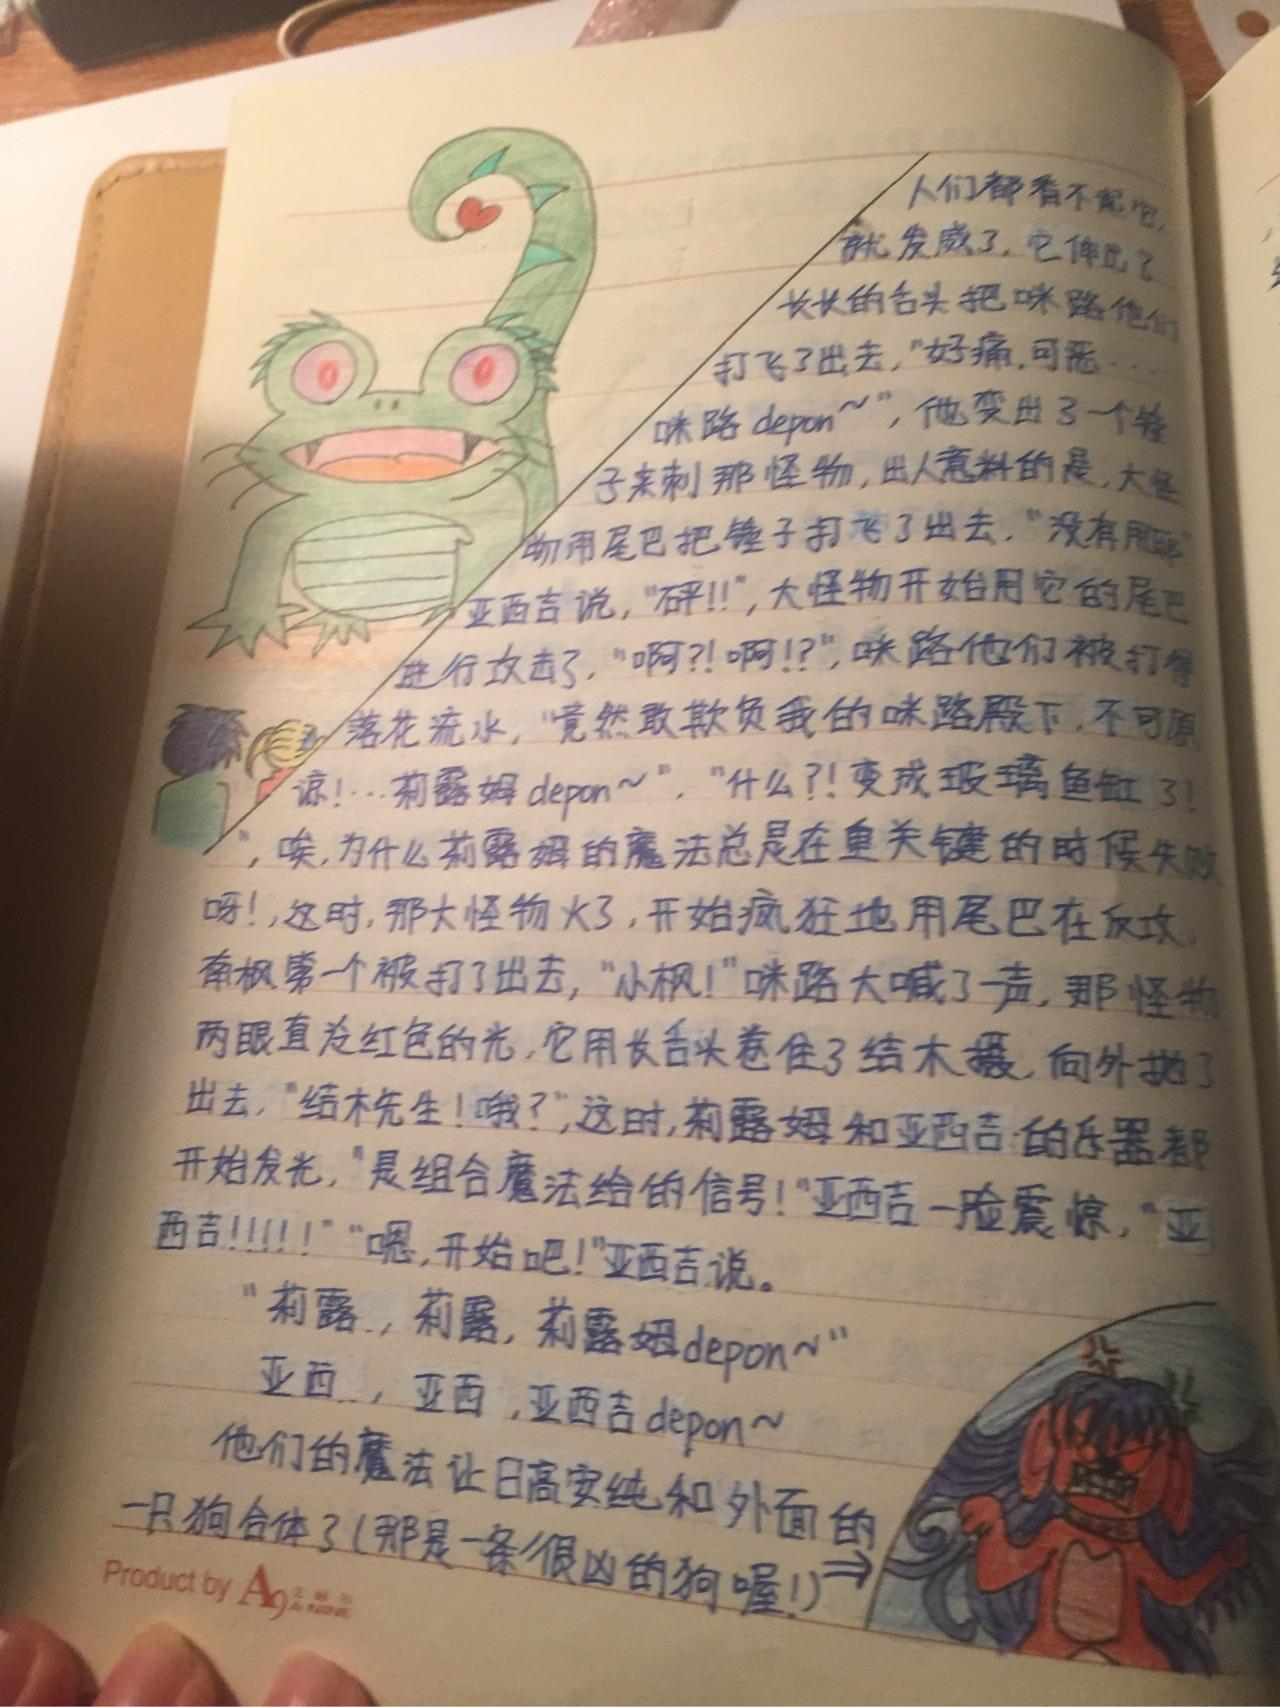 人们都看不起它,
就发威了,它伸出了
长长的舌头把咪路他们
打飞了出去,"好痛,可恶...
咪路depon~",他变出了一个锤
子来刺那怪物,出人意料的是,大怪
物用尾巴把锤子打飞了出去,"没有用耶"
亚西吉说,"砰!!",大怪物开始用它的尾巴
进行攻击了,"啊?!啊!?",咪路他们被打得
落花流水,"竟然敢欺负我的咪路殿下,不可原
谅!...莉露姆depon~","什么?!变成玻璃鱼缸了!
",唉,为什么莉露姆的魔法总是在重关键的时候失败
呀!,这时,那大怪物火了,开始疯狂地用尾巴在反攻,
南枫第一个被打了出去,"小枫!"咪路大喊了一声,那怪物
两眼直冒红色的光,它用长舌头卷住了结木摄,向外抛了
出去,"结木先生!哦?",这时,莉露姆和亚西吉的兵器都
开始发光,"是组合魔法给的信号!"亚西吉一脸震惊,"亚
西吉!!!!!""嗯,开始吧!"亚西吉说。
"莉露,莉露,莉露姆depon~"
亚西,亚西,亚西吉depon~
他们的魔法让日高安纯和外面的
一只狗合体了(那是一条很凶的狗喔!)⇒
Product by A9 艾利尔 A-NINE